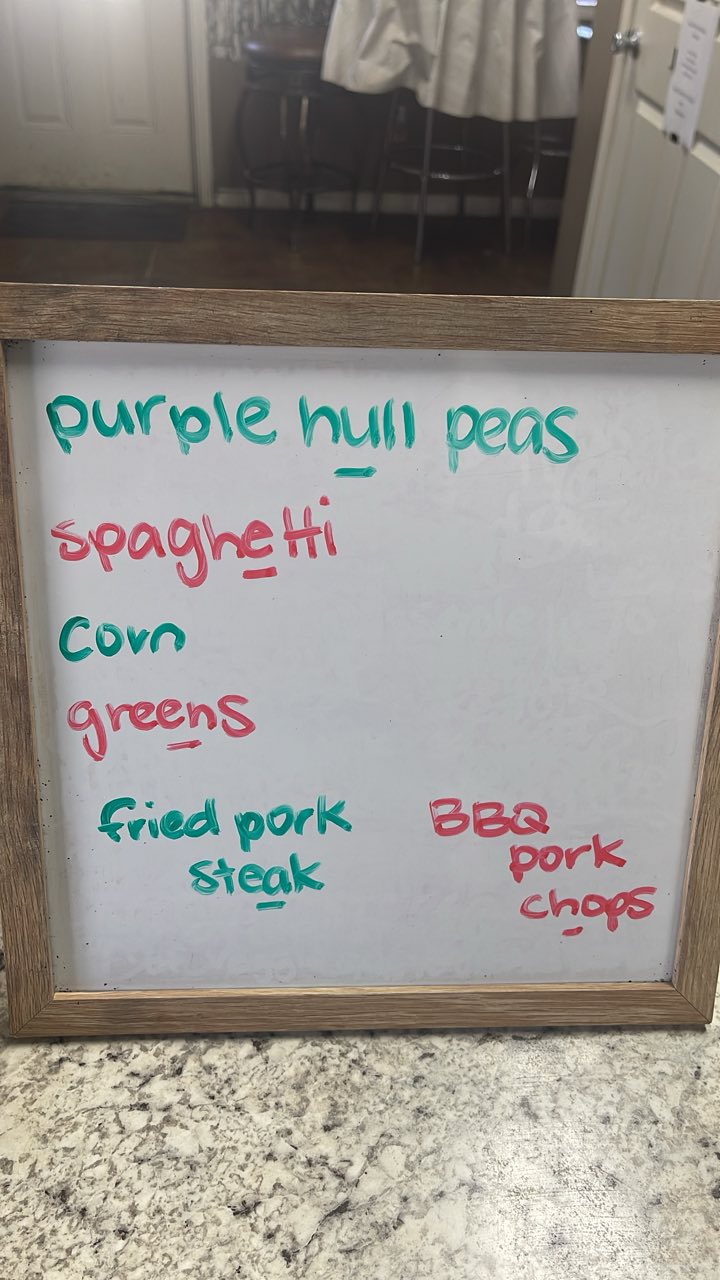 purple hull peas
spaghetti
corn
greens
fried pork
steak
BBQ
pork
chops